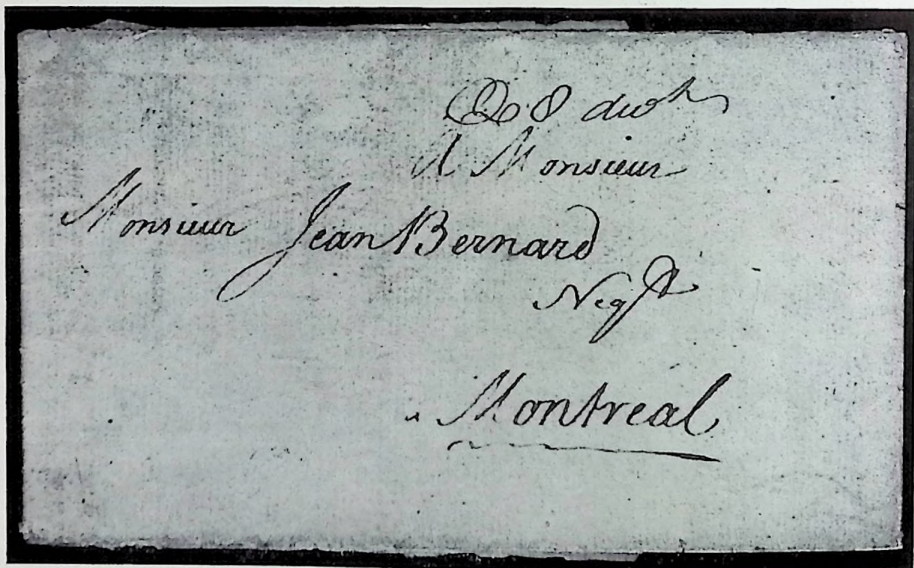 Q. 8 dwt
A Monsieur
Monsieur Jean Bernard
Negt
a Montreal